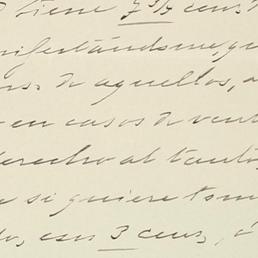 tiene 7 ½ cens
nifestándome, qu
de aquellos, a
en casos de vent
derecho al tanto,
e si quiere tome
do, esos 3 cens, ó